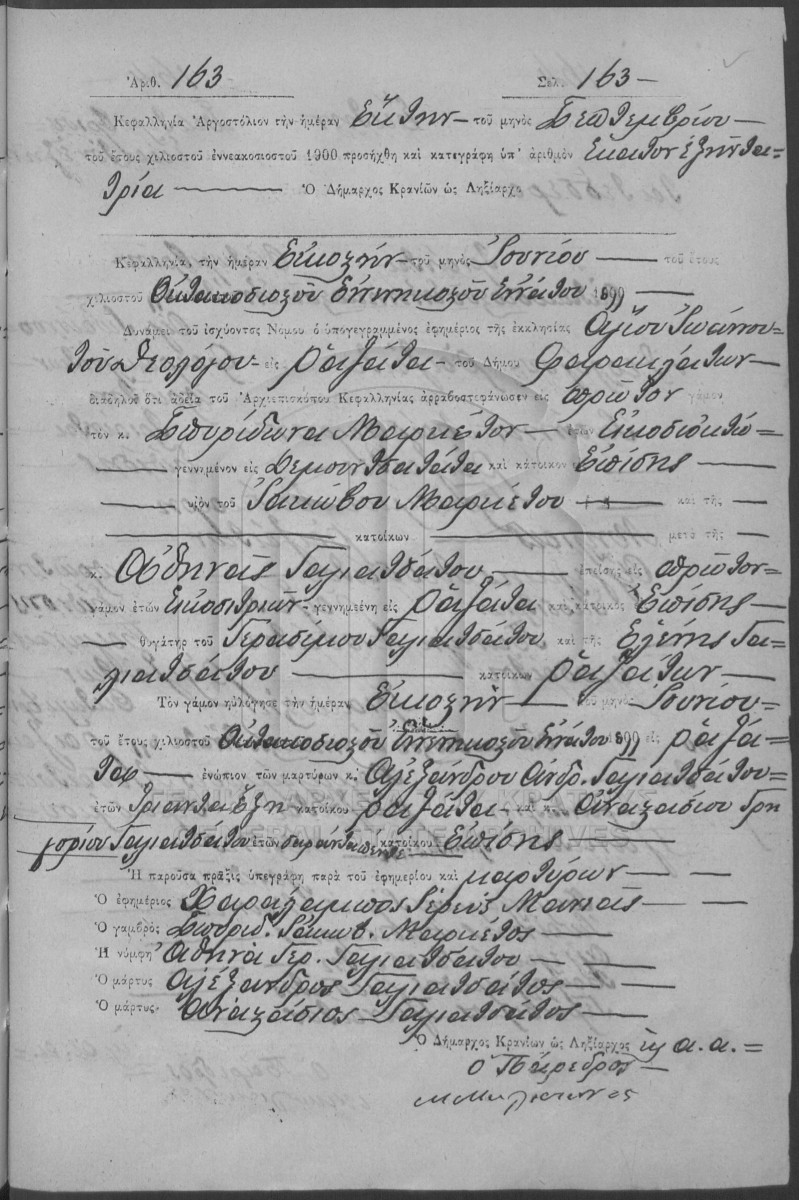 Ἀριθ. 163 Σελ. 163 —
Κεφαλληνία Ἀργοστόλιον τὴν ἡμέραν Ἕκτην τοῦ μηνὸς Σεπτεμβρίου —
τοῦ ἔτους χιλιοστοῦ ἐννεακοσιοστοῦ 1900 προσήχθη καὶ κατεγράφη ὑπ' ἀριθμὸν ἑκατὸν ἑξῆντα=
τρία — Ὁ Δήμαρχος Κρανίων ὡς Ληξίαρχος
Κεφαλληνία, τὴν ἡμέραν Εἰκοστὴν τοῦ μηνὸς Ἰουνίου — τοῦ ἔτους
χιλιοστοῦ Ὀκτακοσιοστοῦ Ἐννενηκοστοῦ Ἐννάτου 1899 —
Δυνάμει τοῦ ἰσχύοντος Νόμου ὁ ὑπογεγραμμένος ἐφημέριος τῆς ἐκκλησίας Ἁγίου Ἰωάννου
τοῦ Θεολόγου — εἰς Ῥαζάτα — τοῦ Δήμου Φαρακλάτων —
διάδηλοῖ ὅτι ἀδείᾳ τοῦ Ἀρχιεπισκόπου Κεφαλληνίας ἀρραβοστεφάνωσεν εἰς πρῶτον γάμον
τὸν κ. Σπυρίδωνα Μαρκέτον — ἐτῶν Εἰκοσιοκτώ=
— γεννημένον εἰς Δεμουτσαντάτα καὶ κάτοικον Ἐπίσης —
— υἱὸν τοῦ Ἰακώβου Μαρκέτου — καὶ τῆς —
— κατοίκων — μετὰ τῆς —
κ. Ἀθηνᾶς Γαλιατσάτου — ἐπίσης εἰς πρῶτον=
γάμον ἐτῶν Εἰκοσιτριῶν — γεννημένη εἰς Ῥαζάτα καὶ κάτοικος Ἐπίσης —
— θυγάτηρ τοῦ Γερασίμου Γαλιατσάτου, καὶ τῆς Ἑλένης Γα=
λιατσάτου — κατοίκων Ῥαζάτων —
Τὸν γάμον ηὐλόγησε τὴν ἡμέραν Εἰκοστὴν — τοῦ μηνὸς Ἰουνίου —
τοῦ ἔτους χιλιοστοῦ Ὀκτακοσιοστοῦ Ἐννενηκοστοῦ Ἐννάτου 1899 εἰς Ῥαζά=
τα — ἐνώπιον τῶν μαρτύρων κ. Ἀλεξάνδρου Ἀνδρ. Γαλιατσάτου —
ἐτῶν Τριάντα ἕξη κατοίκου Ῥαζάτα — καὶ κ. Ἀναστασίου Γρη
γορίου Γαλιατσάτου ἐτῶν σαράντα πέντε κατοίκου Ἐπίσης —
ΓΕΝΙΚΑ ΑΡΧΕΙΑ ΤΟΥ ΚΡΑΤΟΥΣ
GENERAL STATE ARCHIVES
Ἡ παροῦσα πρᾶξις ὑπεγράφη παρὰ τοῦ ἐφημερίου καὶ μαρτύρων —
Ὁ ἐφημέριος Χαράλαμπος Ἱερεὺς —
Ὁ γαμβρὸς Σπυρίδ. Ἰακώβ. Μαρκέτος —
Ἡ νύμφη Ἀθηνᾶ Γερ. Γαλιατσάτου —
Ὁ μάρτυς Ἀλέξανδρος Γαλιατσάτος —
Ὁ μάρτυς. Ἀναστάσιος Γαλιατσάτος —
Ὁ Δήμαρχος Κρανίων ὡς Ληξίαρχος κ. α. α. =
Ὁ Πάρεδρος —